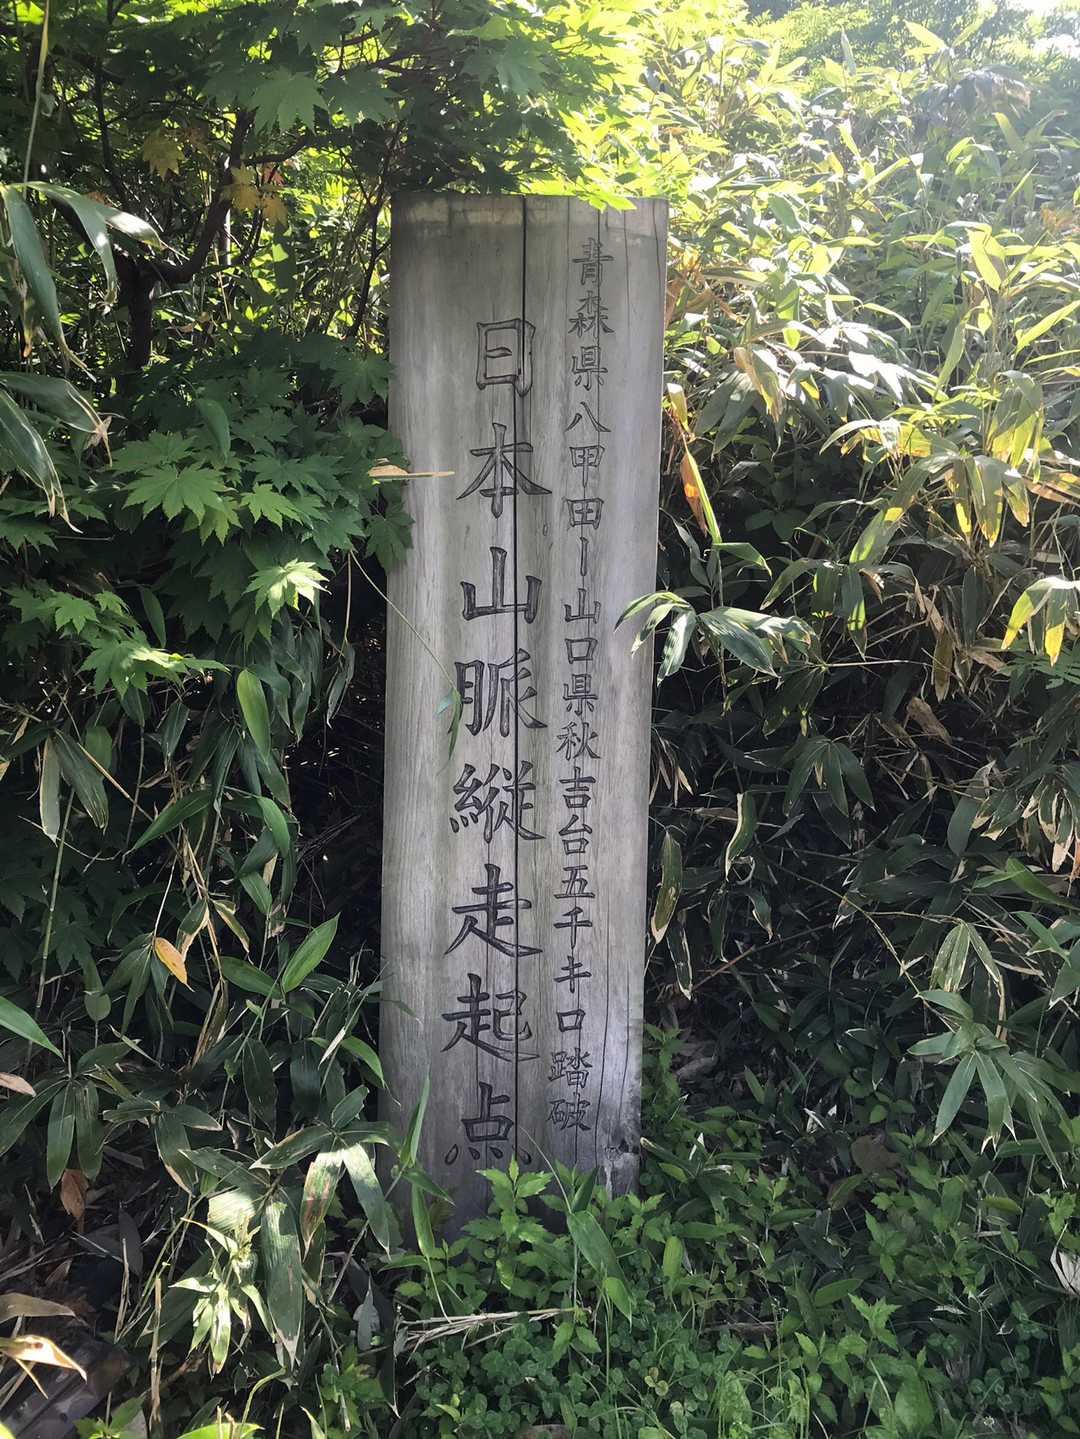 青森県八甲田ー山口県秋吉台五千キロ 踏破
日本山脈縦走起点